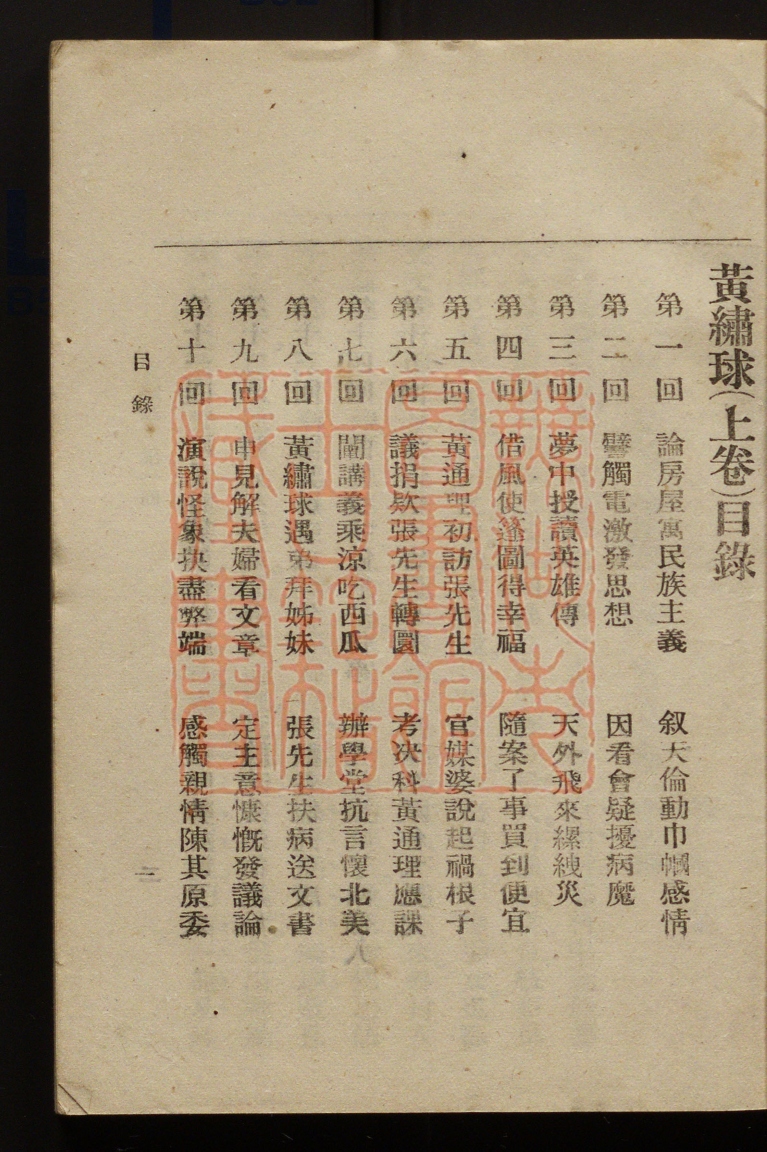 黃繡球（上卷）目錄
第一回　論房屋寓民族主義　叙天倫動巾幗感情
第二回　警觸電激發思想　因看會疑擾病魔
第三回　夢中授讀英雄傳　天外飛來縲絏災
第四回　借風使篷圖得幸福　隨案了事買到便宜
第五回　黃通理初訪張先生　官媒婆說起禍根子
第六回　議捐欵張先生轉圜　考決科黃通理應課
第七回　闡講義乘涼吃西瓜　辦學堂抗言懷北美
第八回　黃繡球遇弟拜姊妹　張先生扶病送文書
第九回　申見解夫婦看文章　定主意慷慨發議論
第十回　演說怪象抉盡弊端　感觸親情陳其原委
目錄